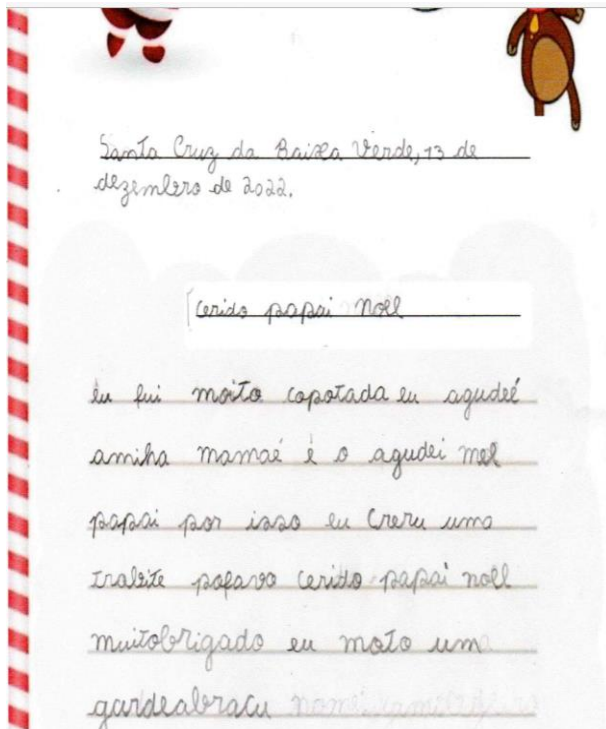 Santa Cruz da Baixa Verde, 13 de
dezembro de 2022.
Cerido papai noll
eu fui moito copotada eu agudeé
amiha mamaé é o agudei mel
papai por isso eu Creru uma
trabite pofavo cerido papai noll
muitobrigado eu moto um
gardeabracu